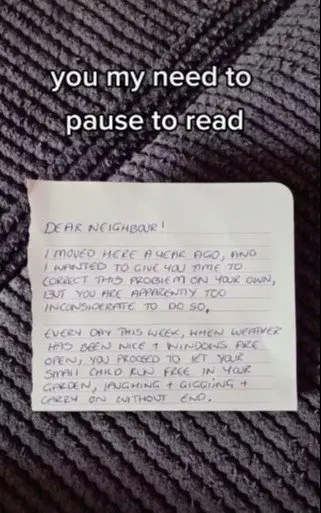 you my need to
pause to read
DEAR NEIGHBOUR!
I MOVED HERE A YEAR AGO, AND
I WANTED TO GIVE YOU TIME TO
CORRECT THIS PROBLEM ON YOUR OWN,
BUT YOU ARE APPARENTLY TOO
INCONSIDERATE TO DO SO.
EVERY DAY THIS WEEK, WHEN WEATHER
HAS BEEN NICE + WINDOWS ARE
OPEN, YOU PROCEED TO LET YOUR
SMALL CHILD RUN FREE IN YOUR
GARDEN, LAUGHING + GIGGLING +
CARRY ON WITHOUT END.